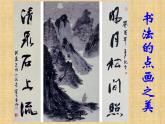 书法的点画之美
明月松间照
清泉石上流